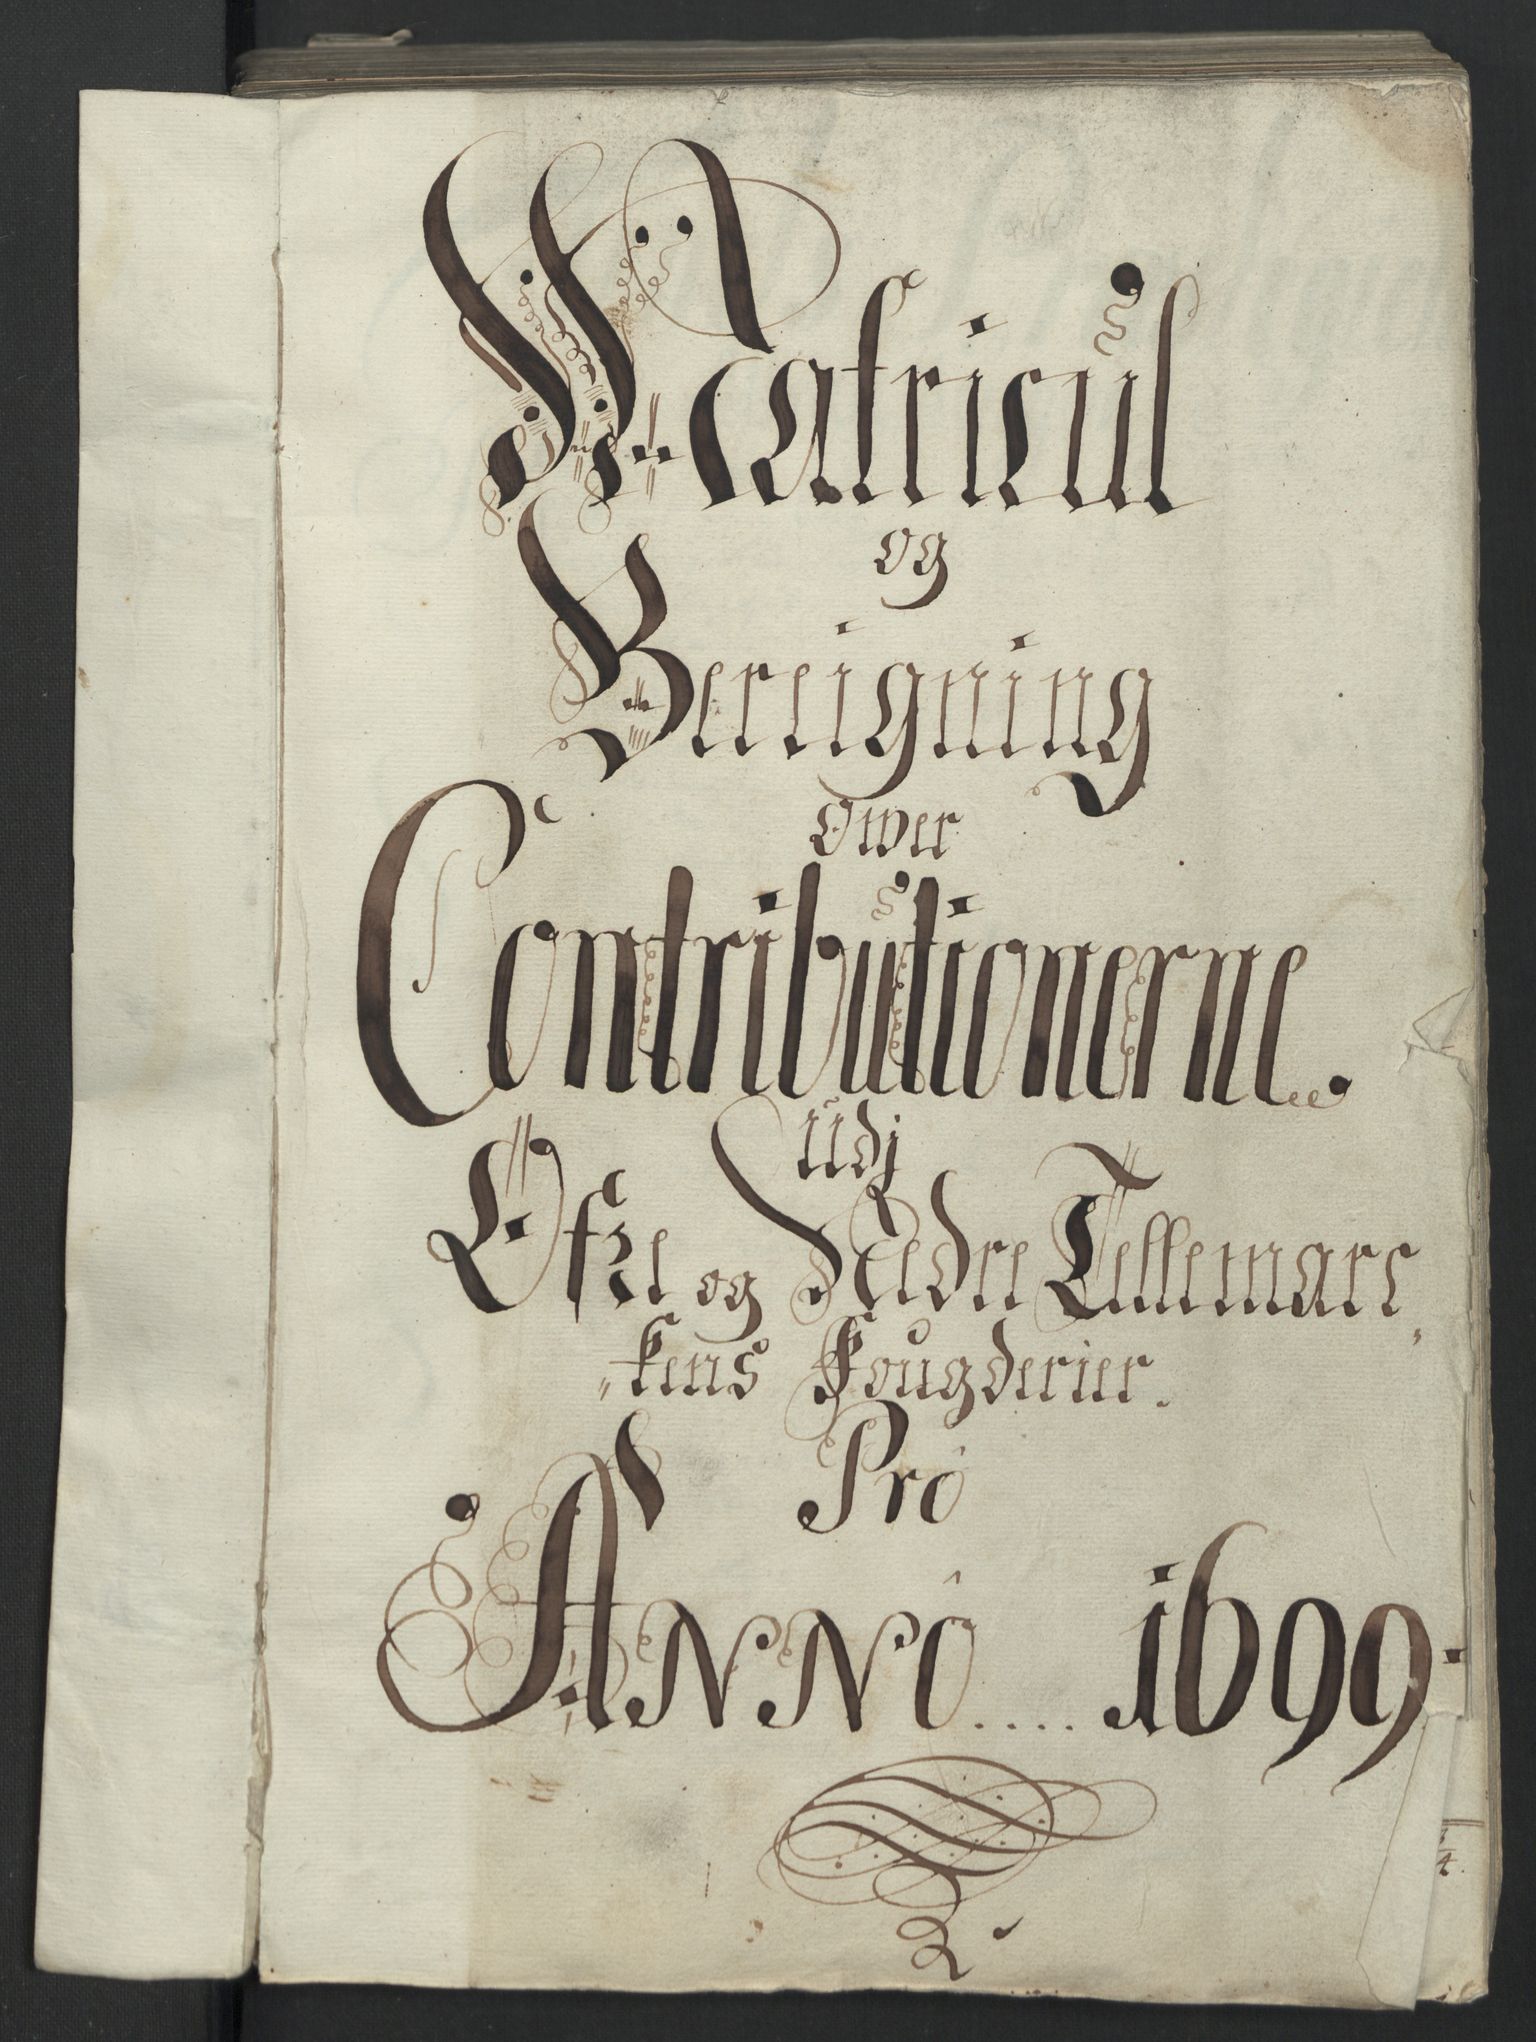 Matricul
og
Bereigning
Ower
Contributionerne
udj
Øfre og Nedre Tellemarc
kens Fougderier.
Pro
Anno .... 1699.
2.